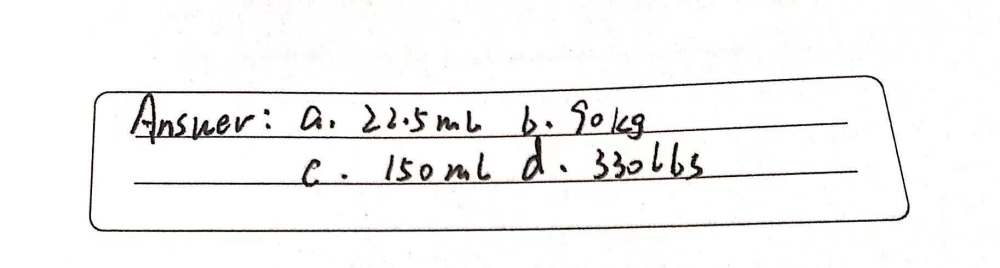 Answer: a. 22.5mL b. 90kg
c. 150mL d. 330lbs